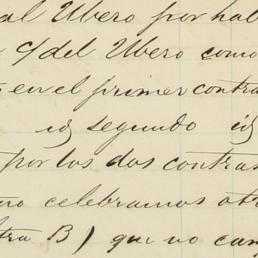 al Ubero por hab
c/ del Ubero como
en el primer contra
id segundo id
por los dos contra
no celebramos otr
tra B) que no cam